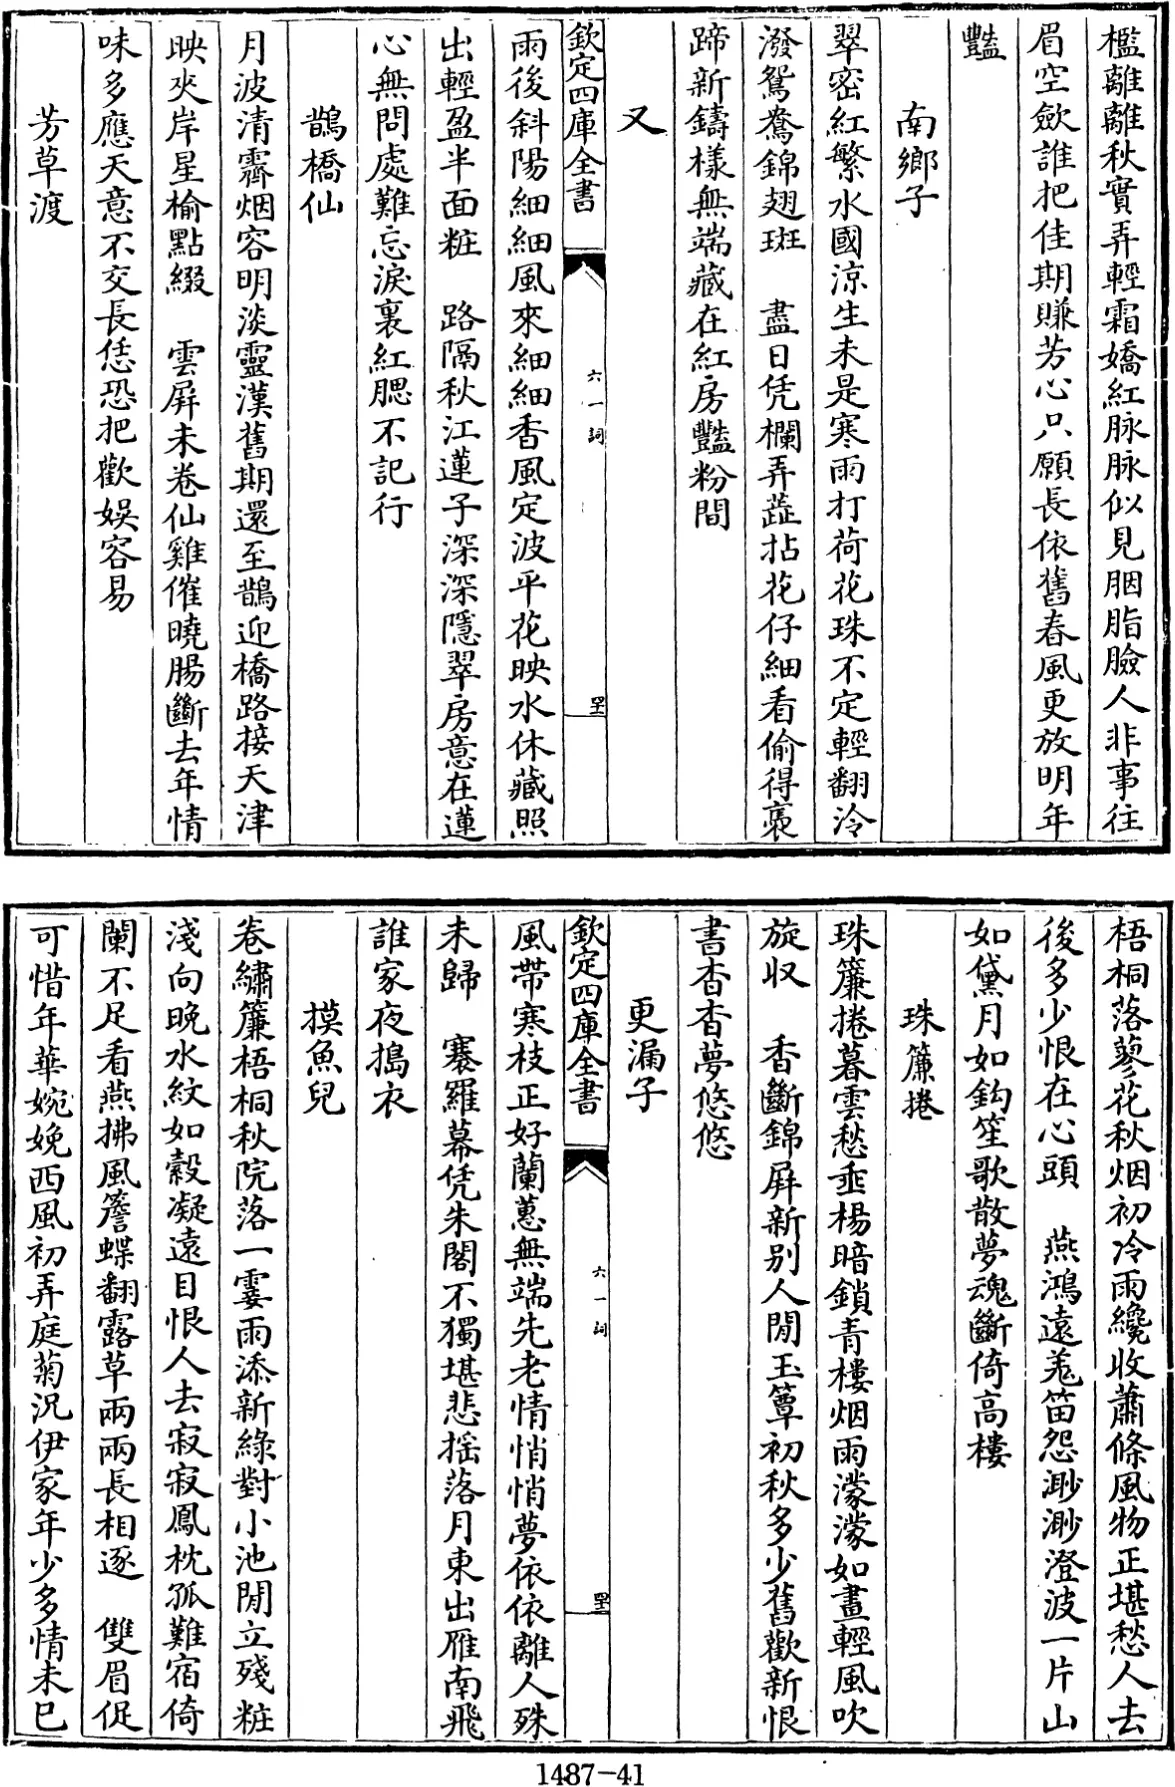 檻離離秋實弄輕霜嬌紅脉脉似見胭脂臉人非事往
眉空斂誰把佳期賺芳心只願長依舊春風更放明年
豔
南鄉子
翠密紅繁水國凉生未是寒雨打荷花珠不定輕翻冷
潑鴛鴦錦翅斑　盡日凭欄弄蘂拈花仔細看偷得褭
蹄新鑄樣無端藏在紅房豔粉間
又
欽定四庫全書
六一詞
雨後斜陽細細風來細細香風定波平花映水休藏照
出輕盈半面粧　路隔秋江蓮子深深隱翠房意在蓮
心無問處難忘淚裏紅腮不記行
鵲橋仙
月波清霽烟容明淡靈漢舊期還至鵲迎橋路接天津
映夾岸星榆點綴　雲屏未卷仙雞催曉腸斷去年情
味多應天意不交長恁恐把歡娛容易
芳草渡
梧桐落蓼花秋烟初冷雨纔收蕭條風物正堪愁人去
後多少恨在心頭　燕鴻遠羌笛怨渺渺澄波一片山
如黛月如鈎笙歌散夢魂斷倚高樓
珠簾捲
珠簾捲暮雲愁垂楊暗鎖青樓烟雨濛濛如畫輕風吹
旋収　香斷錦屏新別人閒玉簟初秋多少舊歡新恨
書杳杳夢悠悠
更漏子
欽定四庫全書
六一詞
風帶寒枝正好蘭蕙無端先老情悄悄夢依依離人殊
未歸　褰羅幕凭朱閣不獨堪悲摇落月東出雁南飛
誰家夜搗衣
摸魚兒
卷繡簾梧桐秋院落一霎雨添新綠對小池閒立殘粧
淺向晚水紋如縠凝遠目恨人去寂寂鳳枕孤難宿倚
闌不足看燕拂風簷蝶翻露草兩兩長相逐　雙眉促
可惜年華婉娩西風初弄庭菊况伊家年少多情未已
1487-41